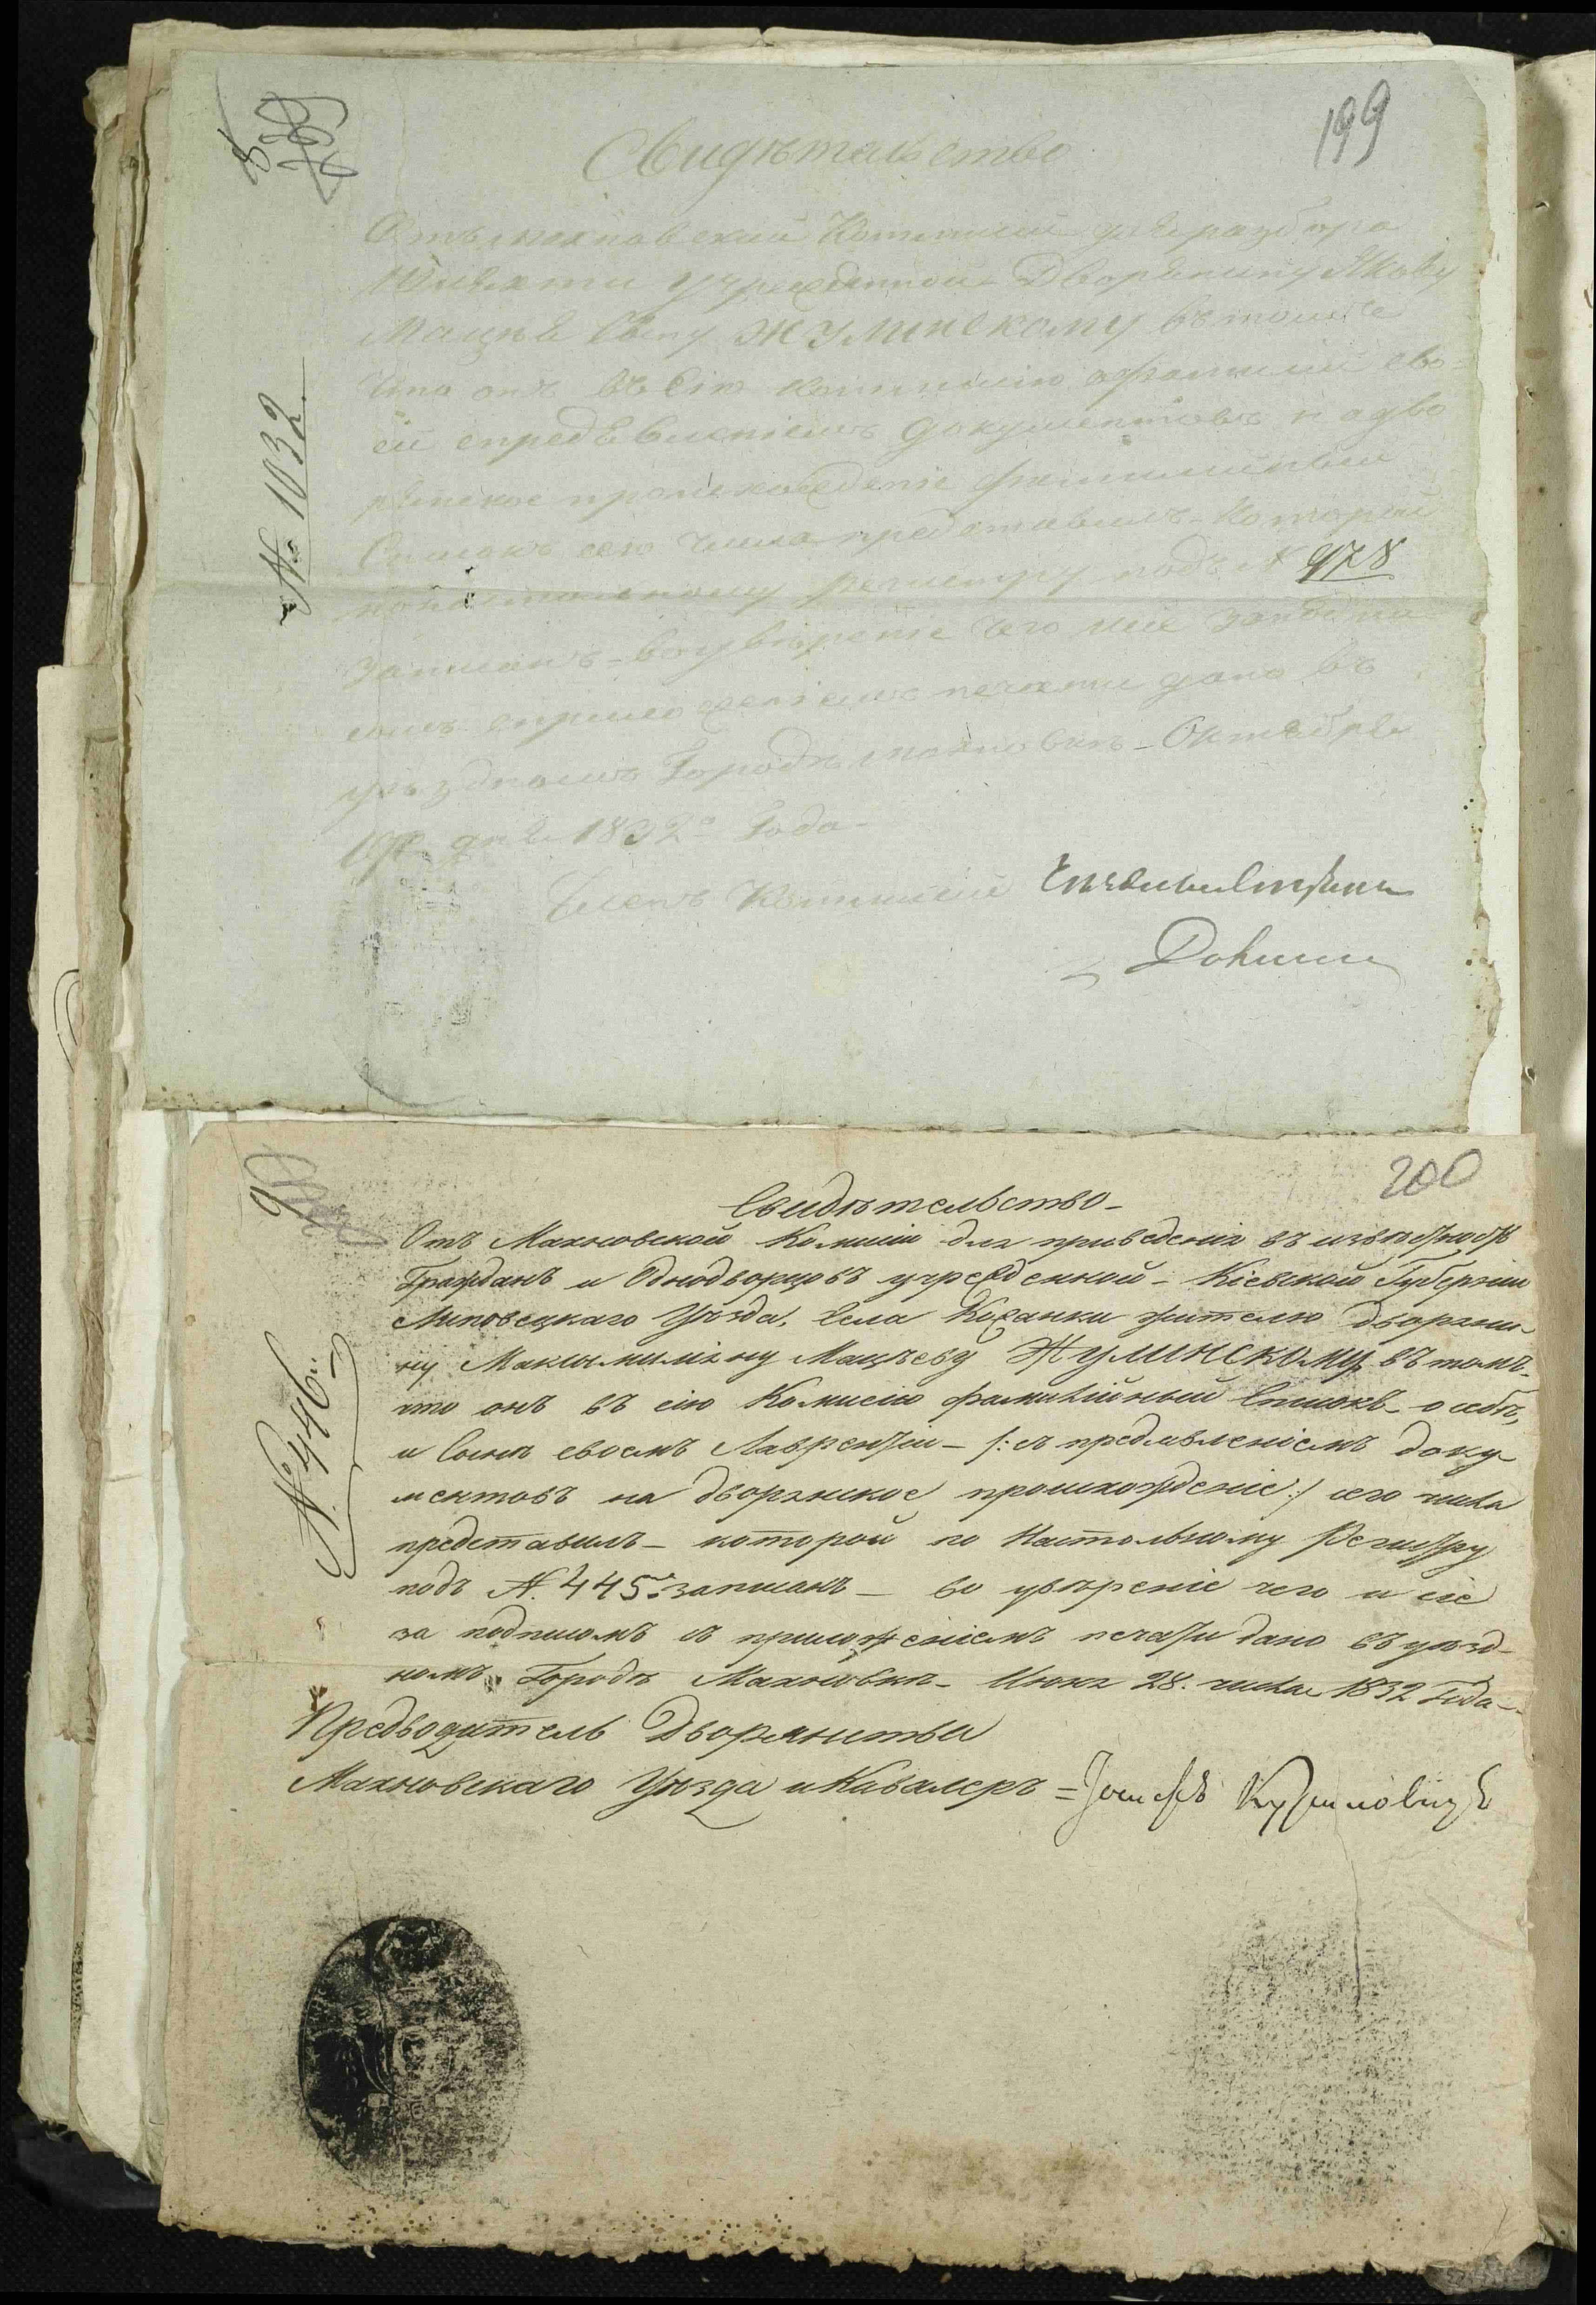 199
Свидѣтельство
Отъ Махновской Коммисіи для разбора
Шляхты учрежденной – Дворянину Якову
Мацѣя Сыну Жулинскому въ томъ
что онъ въ Сію Коммисію о фамиліи сво=
ей спредъявленіемъ документовъ на дво
рянское происхожденіе фамилійный
Списокъ сего числа представилъ – Который
по настольному регистру подъ N 978
записанъ – во увѣреніе чего сіе за подпи
сомъ сприложеніемъ печати дано въ
уѣздномъ Городѣ Махновкѣ – Октября
дня 1832го Года –
Членъ Коммисіи
№ 1032.
200
Свидѣтельство –
Отъ Махновской Комисіи для приведенія въ извѣстность
Гражданъ и Однодворцовъ учрежденной – Кіевской Губерніи
Липовецкаго Уѣзда, Села Коханки жителю дворяни
ну Макьсимиліяну Мацѣеву Жулинскому въ томъ –
что онъ въ сію Комисію фамилійный Списокъ – о себѣ,
и Сынѣ своемъ Лаврентіи – /: съ предъявленіемъ доку
ментовъ на дворянское происхожденіе :/ сего числа
представилъ – которой по Настольному Регистру
подъ N. 445 записанъ – во увѣреніе чего и сіе
за подписомъ съ приложеніемъ печати дано въ уѣзд –
номъ Городѣ Махновкѣ – Июня 28. числа 1832 Года –
Предводитель Дворянства
Махновскаго Уѣзда и Кавалеръ =
№ 446.